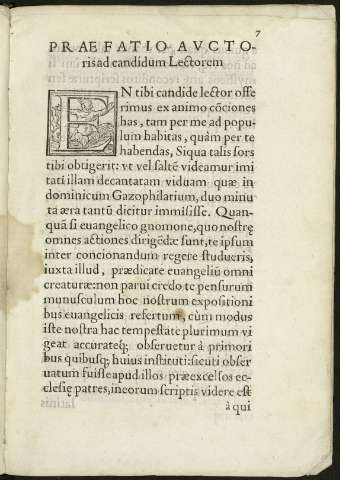 7
PRAEFATIO AVCTO-
ris ad candidum Lectorem
EN tibi candide lector offe
rimus ex animo cōciones
has, tam per me ad popu-
lum habitas, quàm per te
habendas, Siqua talis sors
tibi obtigerit: vt vel saltē videamur imi
tati illam decantatam viduam quæ in
dominicum Gazophilarium, duo minu
ta æra tantū dicitur immisisse. Quan-
quā si euangelico gnomone, quo nostrę
omnes actiones dirigēdæ sunt, te ipsum
inter concionandum regere studueris,
iuxta illud, prædicate euangeliū omni
creaturæ: non parui credo te pensurum
munusculum hoc nostrum expositioni
bus euangelicis refertum, cùm modus
iste nostra hac tempestate plurimum vi
geat accurateq; obseruetur à primori
bus quibusq; huius instituti: sicuti obser
uatum fuisse apud illos præexcelsos ec-
clesię patres, in eorum scriptis videre est
à qui